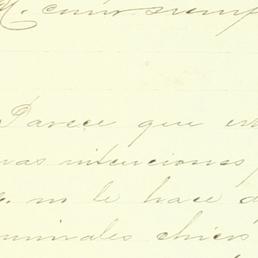 como siemp
Parece que es
nas intenciones
no le hace d
minales chicos